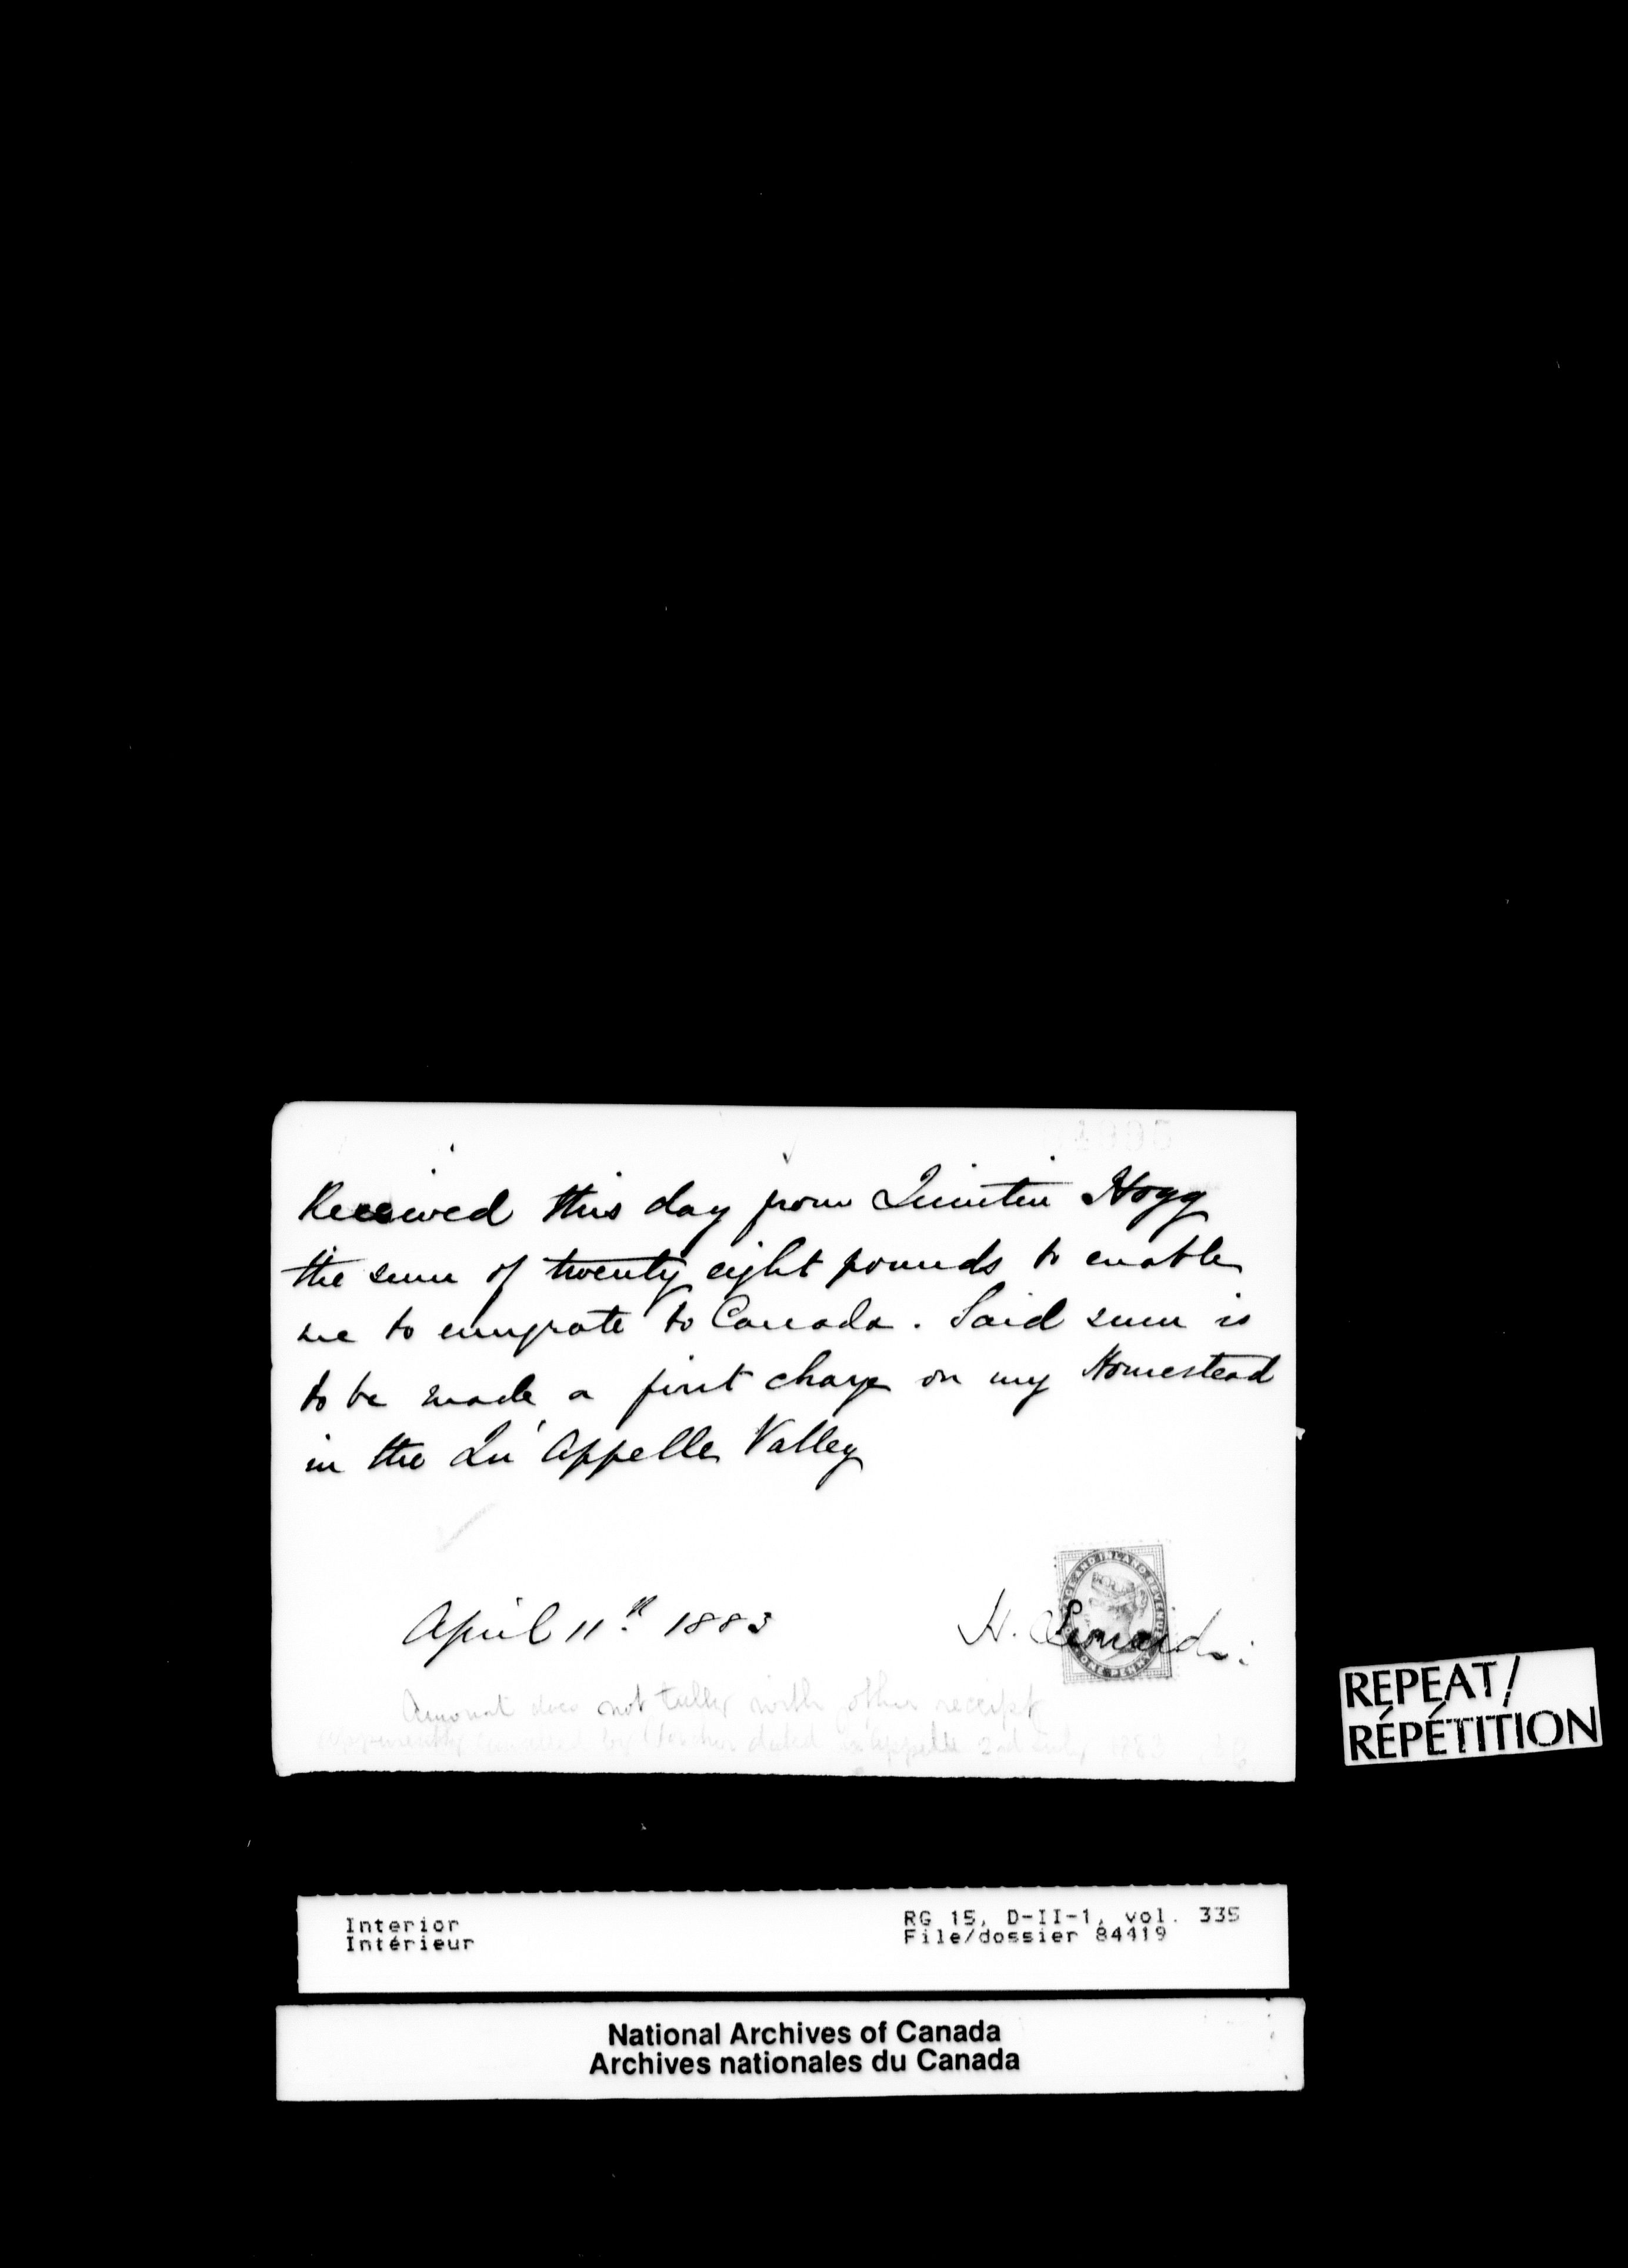 Received this day from Quintin Hogg
the sum of twenty eight pounds to enable
me to emigrate to Canada. Said sum is
to be made a first charge on my Homestead
in the Qu'Appelle Valley
April 11th 1883
H.
INLAND REVENUE
ONE PENNY
Amount does not tally with other receipt
apparently cancelled by dated Qu'appelle 2nd July 1883
REPEAT/
RÉPÉTITION
Interior
Intérieur
RG 15, D-II-1, vol. 335
File/dossier 84419
National Archives of Canada
Archives nationales du Canada